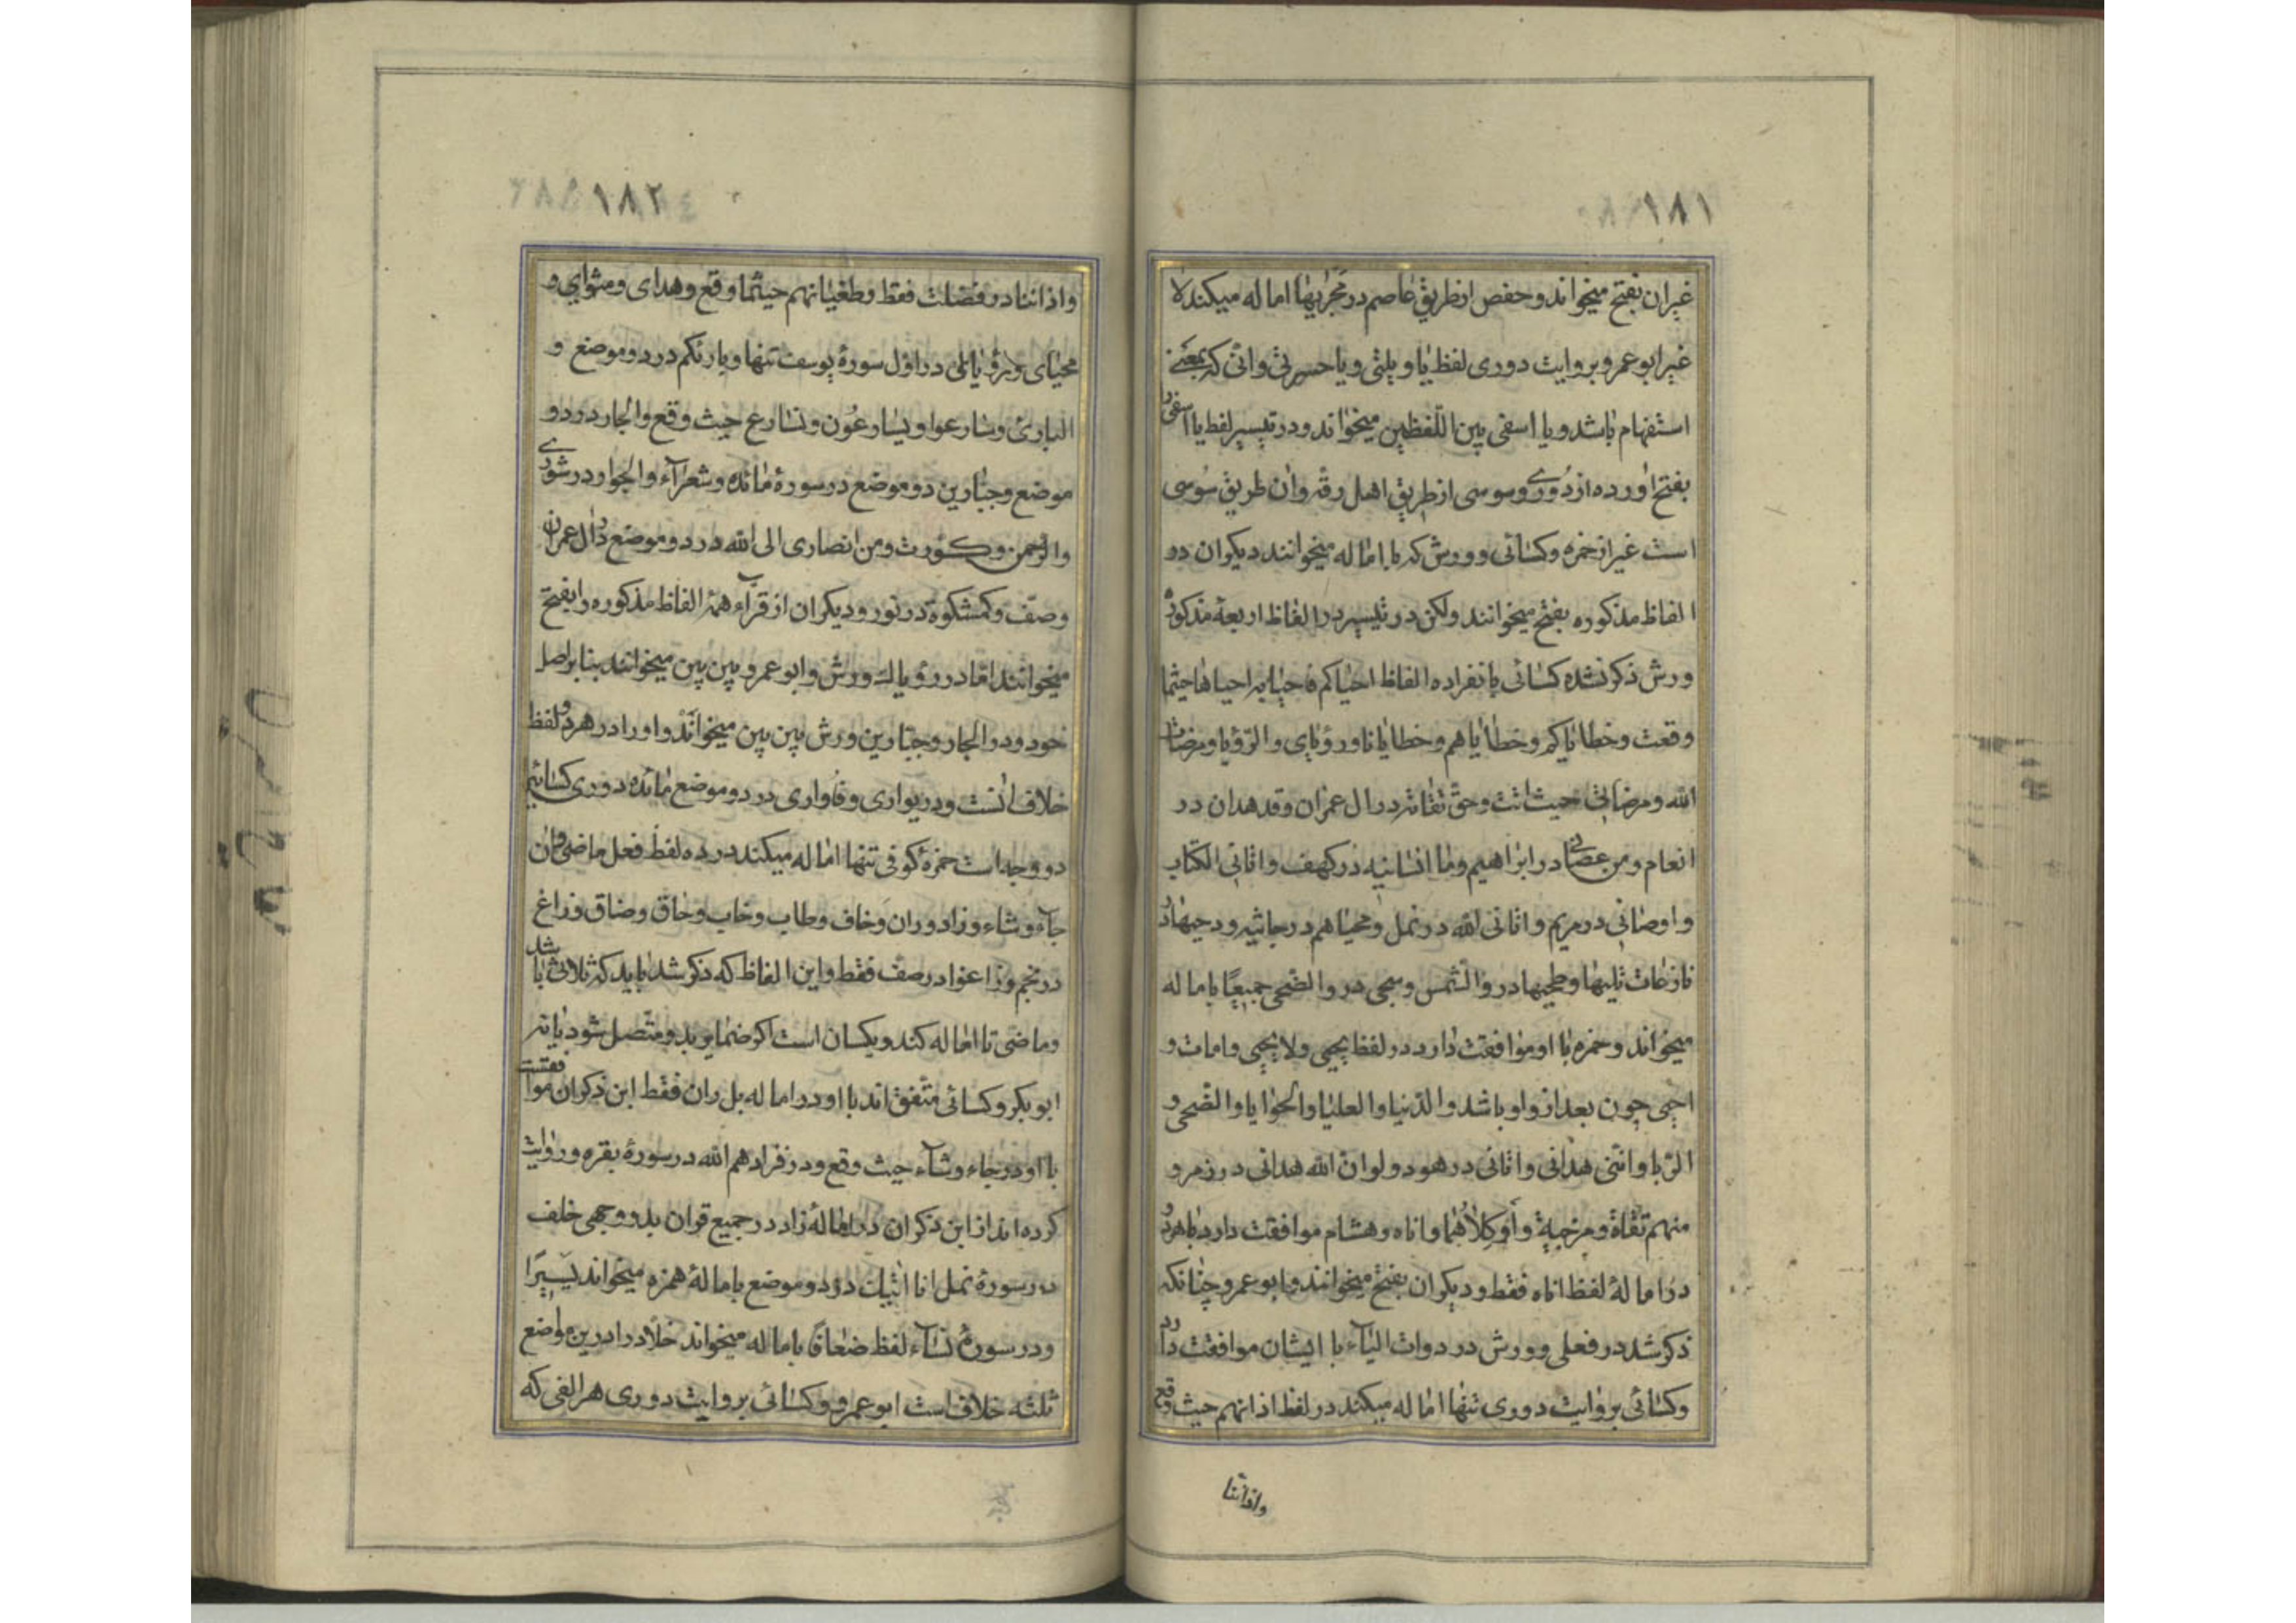 ١٨١
غیران بفتح میخواند و حفص از طریق عاصم در مجریها اماله میکند لا
غیر ابو عمرو بروایت دوری لفظ یا ویلتی و یا حسرتی و انی که بمعنی
استفهام باشد و یا اسفی بین اللفظین میخواند و در تیسیر لفظ یا اسفی را
بفتح اورده از دوری و سوسی از طریق اهل رقه و ان طریق سوسی
است غیر از حمزه و کسائی و ورش که با اماله میخوانند دیکران در
الفاظ مذکوره بفتح میخوانند ولکن در تیسیر در الفاظ اربعهٔ مذکوره
ورش ذکر نشده کسائی بانفراده الفاظ احیاکم فاحیابه احیاها حیثما
وقعت و خطایاکم و خطایاهم و خطایانا و رؤیای و الرؤیا و مرضات
الله و مرضاتی حیث اتت و حق تقاته در ال عمران و قد هدان در
انعام و من عصانی در ابراهیم و ما انسانیه در کهف و اتانی الکتاب
و اوصانی در مریم و اتانی الله در نمل و محیاهم در جاثیه و دحیها در
نازعات تلیها و طحیها در و الشمس و سجی در و الضحی جمیعًا باماله
میخواند و حمزه با او موافقت دارد در لفظ یحیی و لا یحیی و امات و
احیی چون بعد از واو باشد و الدنیا و العلیا و الحوایا و الضحی و
الربا و اننی هدانی و اتانی در هود و لو ان الله هدانی در زمر و
منهم تقاة و مزجیة و أو کلاهما و اناه و هشام موافقت دارد با هر دو
در امالهٔ لفظ اناه فقط و دیکران بفتح میخوانند و ابو عمرو چنانکه
ذکر شد در فعلی و ورش در ذوات الیاء با ایشان موافقت دارد
و کسائی بروایت دوری تنها اماله میکند در لفظ اذانهم حیث وقع
و اذاننا
١٨٢
و اذاننا در فصلت فقط و طغیانهم حیثما وقع و هدای و مثوای و
محیای و رؤیای در اول سورهٔ یوسف تنها و بارئکم در دو موضع و
البارئ و سارعوا و یسارعون و نسارع حیث وقع و الجار در دو
موضع و جبارین دو موضع در سورهٔ مائده و شعرآء و الجوار در شوری
و الرحمن و کورت و من انصاری الی الله در دو موضع در ال عمران
و صف و کمشکوة در نور و دیکران از قرآء همهٔ الفاظ مذکوره را بفتح
میخوانند اما در رؤیاک ورش و ابو عمرو بین بین میخوانند بنا بر اصل
خود و در الجار و جبارین ورش بین بین میخواند و او را در هر دو لفظ
خلاف است و در یواری و فاواری در دو موضع مائده دوری کسائی
دو وجه است حمزهٔ کوفی تنها اماله میکند در ده لفظ فعل ماضی و ان
جآء و شاء و زاد و ران و خاف و طاب و خاب و حاق و ضاق و زاغ
در نجم و زاغوا در صف فقط و این الفاظ که ذکر شد باید که ثلاثی باشد
و ماضی تا اماله کند و یکسان است اکر ضمایر بدو متصل شود یا نه
ابو بکر و کسائی متفق اند با او در اماله بل ران فقط ابن ذکوان موافقست
با او در جاء و شآء حیث وقع و در فزادهم الله در سورهٔ بقره و روایت
کرده اند از ابن ذکوان در امالهٔ زاد در جمیع قران بدو وجهی خلف
در سورهٔ نمل انا اتیک در دو موضع بامالهٔ همزه میخواند یسیرًا
و در سورهٔ نسآء لفظ ضعافا باماله میخواند خلاد را در این مواضع
ثلثه خلاف است ابو عمرو و کسائی بروایت دوری هر الفی که